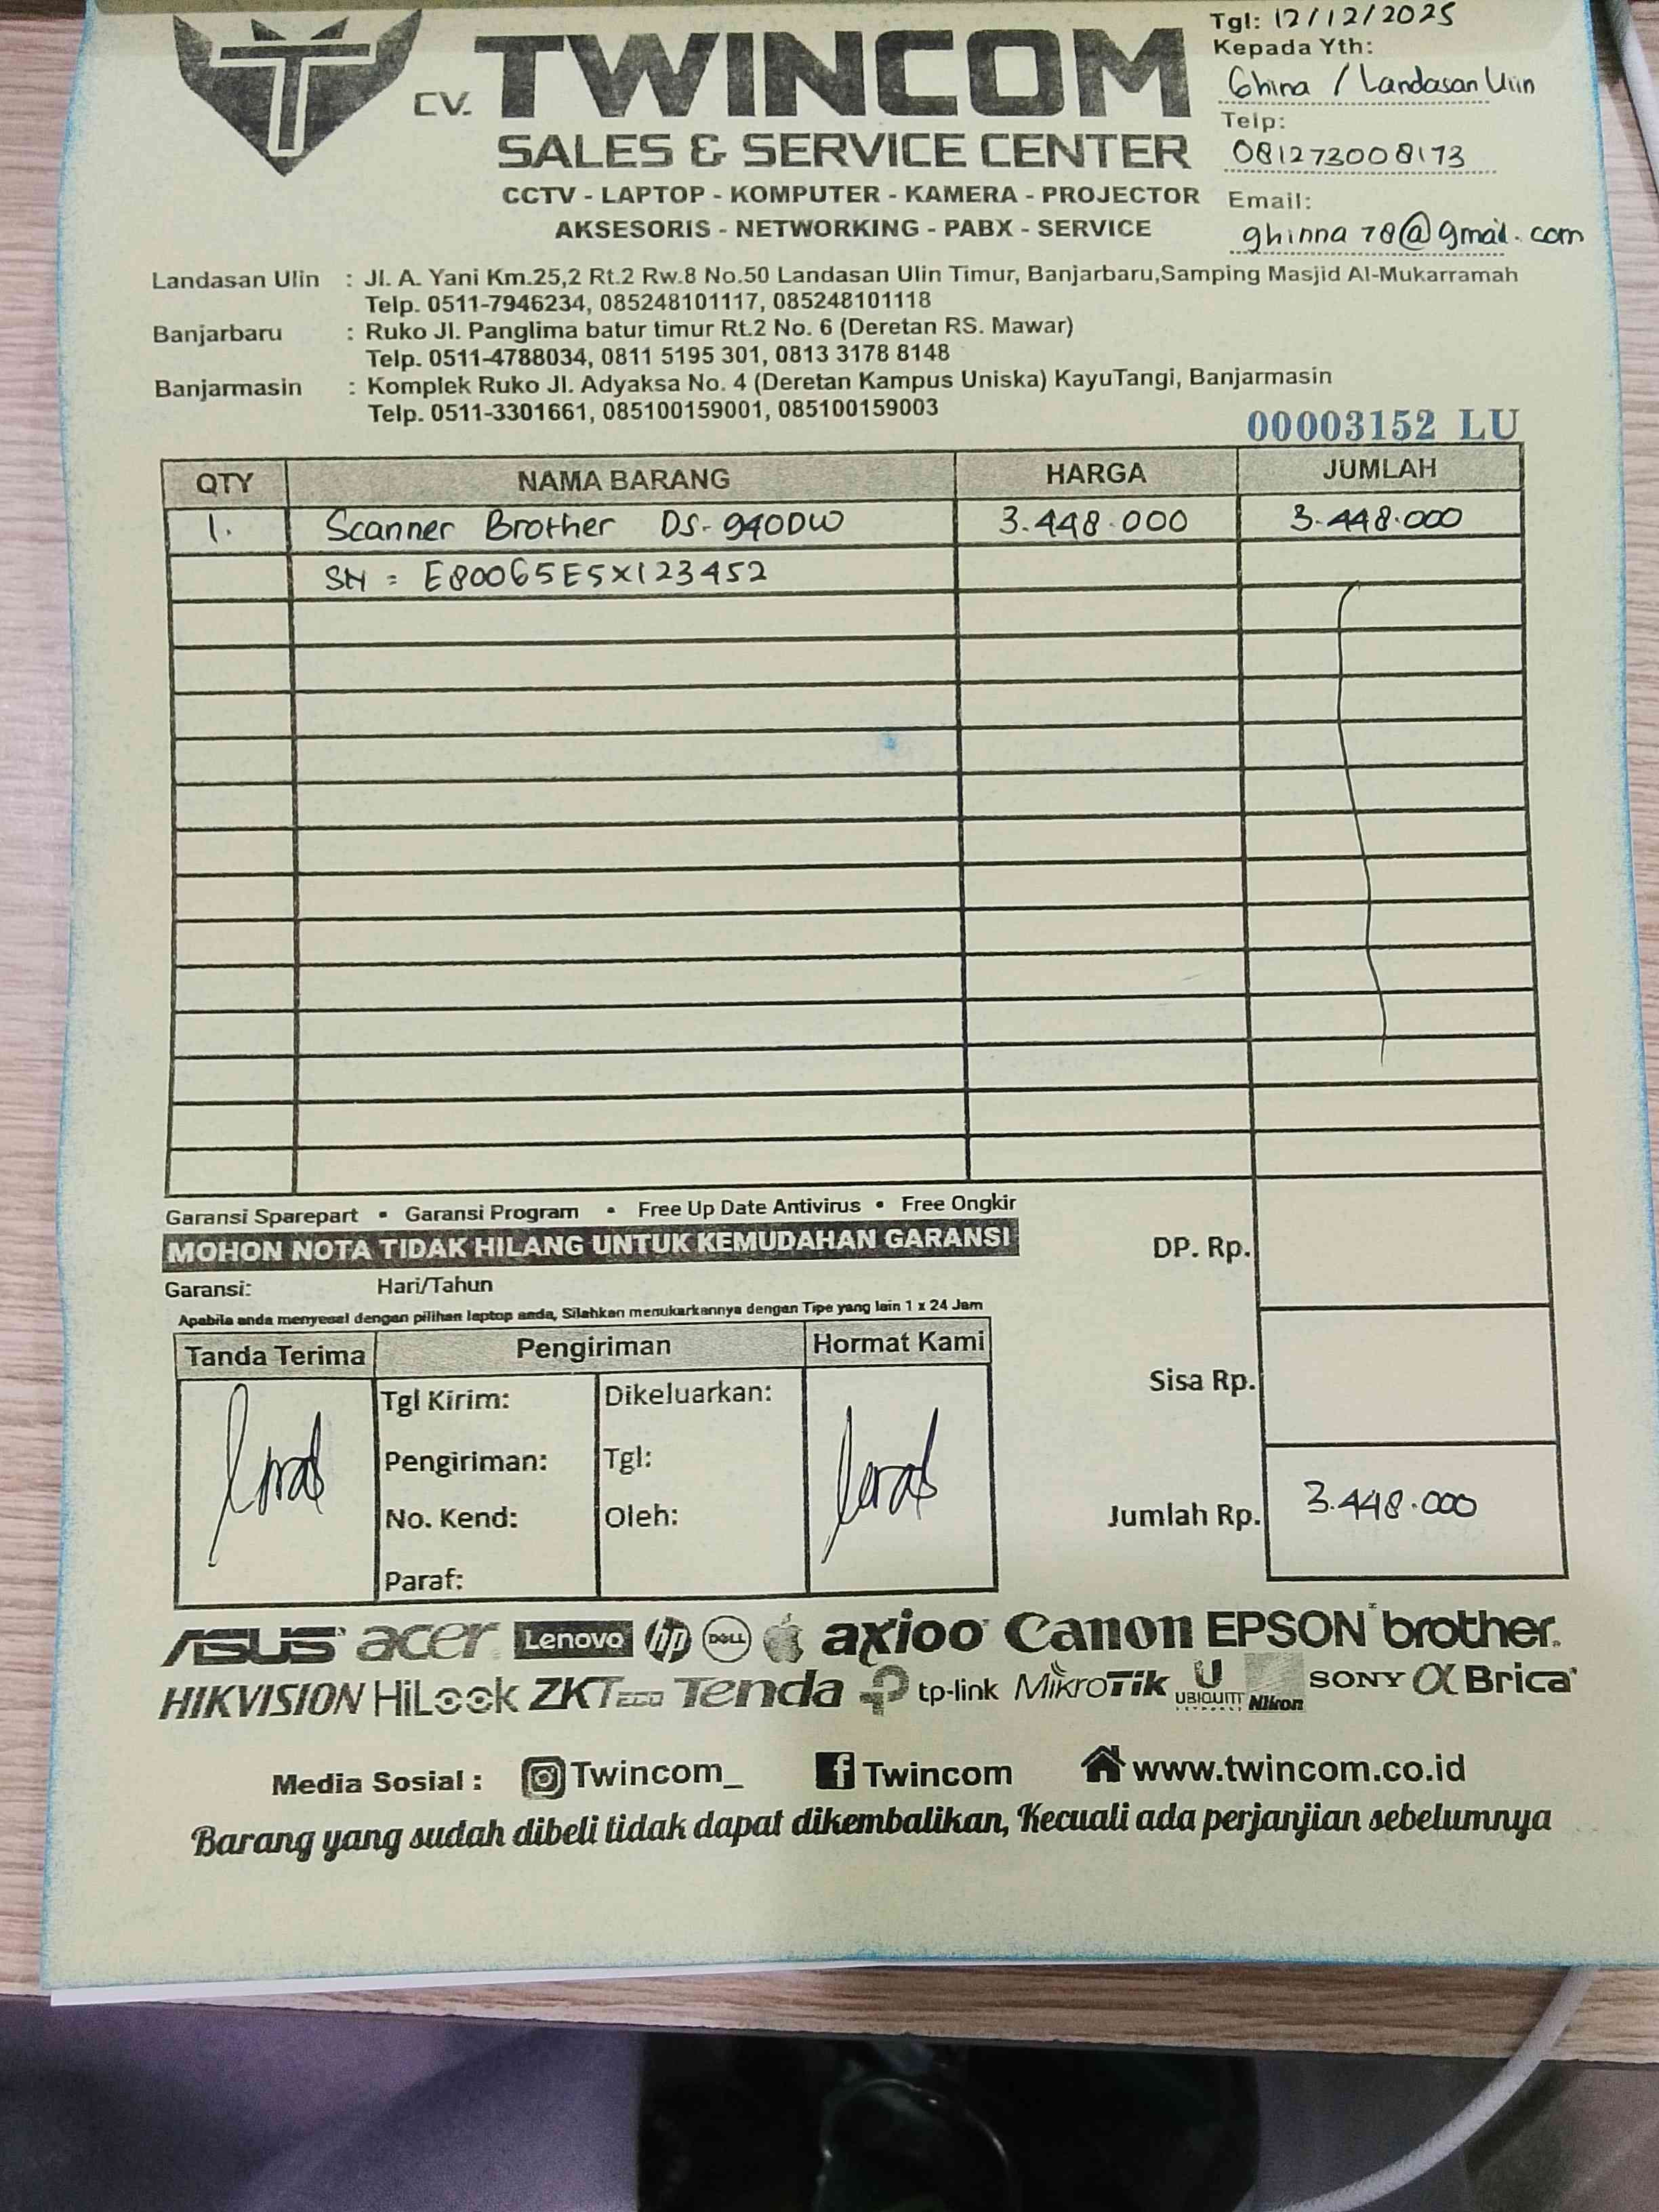 Tgl: 12/12/2025
Kepada Yth:
Ghina / Landasan Ulin
Telp:
081273008173
Email:
ghinna78@gmail.com
CV. TWINCOM
SALES & SERVICE CENTER
CCTV - LAPTOP - KOMPUTER - KAMERA - PROJECTOR
AKSESORIS - NETWORKING - PABX - SERVICE
Landasan Ulin : Jl. A. Yani Km.25,2 Rt.2 Rw.8 No.50 Landasan Ulin Timur, Banjarbaru,Samping Masjid Al-Mukarramah
Telp. 0511-7946234, 085248101117, 085248101118
Banjarbaru : Ruko Jl. Panglima batur timur Rt.2 No. 6 (Deretan RS. Mawar)
Telp. 0511-4788034, 0811 5195 301, 0813 3178 8148
Banjarmasin : Komplek Ruko Jl. Adyaksa No. 4 (Deretan Kampus Uniska) KayuTangi, Banjarmasin
Telp. 0511-3301661, 085100159001, 085100159003
00003152 LU
QTY NAMA BARANG HARGA JUMLAH
1. Scanner Brother DS-940DW 3.448.000 3.448.000
SN = E80065E5X123452
Garansi Sparepart • Garansi Program • Free Up Date Antivirus • Free Ongkir
MOHON NOTA TIDAK HILANG UNTUK KEMUDAHAN GARANSI
Garansi: Hari/Tahun
Apabila anda menyesal dengan pilihan laptop anda, Silahkan menukarkannya dengan Tipe yang lain 1 x 24 Jam
DP. Rp.
Sisa Rp.
Jumlah Rp. 3.448.000
Tanda Terima Pengiriman Hormat Kami
Tgl Kirim: Dikeluarkan:
Pengiriman: Tgl:
No. Kend: Oleh:
Paraf:
ASUS acer Lenovo hp DELL axioo Canon EPSON brother
HIKVISION HiLook ZKTeco Tenda tp-link MikroTik UBIQUITI Nikon SONY α Brica
Media Sosial : Twincom_ Twincom www.twincom.co.id
Barang yang sudah dibeli tidak dapat dikembalikan, Kecuali ada perjanjian sebelumnya